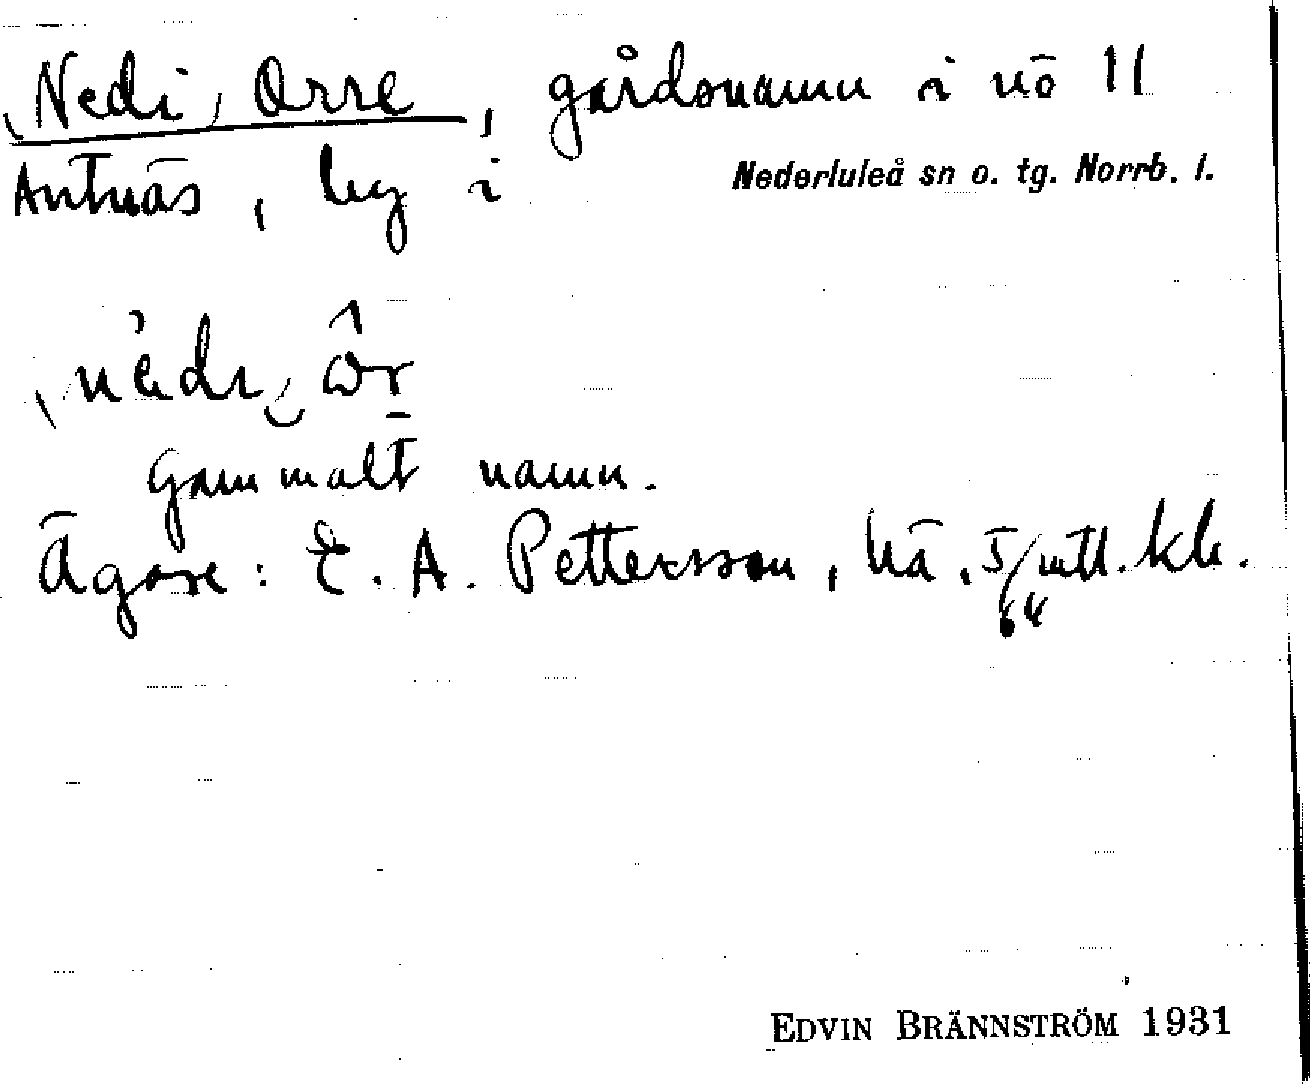 Nedi, Orre, gårdsnamn i nö 11
Antnäs, by i Nederluleå sn o. tg. Norrb. l.
Gammalt namn.
Ägare: E. A. Pettersson, hä, 5/64 mtl. kr.
EDVIN BRÄNNSTRÖM 1931